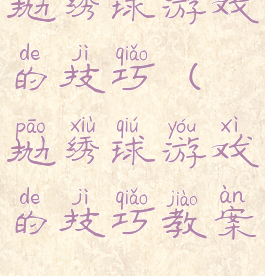 抛绣球游戏
de jì qiǎo
的技巧（
pāo xiù qiú yóu xì
抛绣球游戏
de jì qiǎo jiào àn
的技巧教案